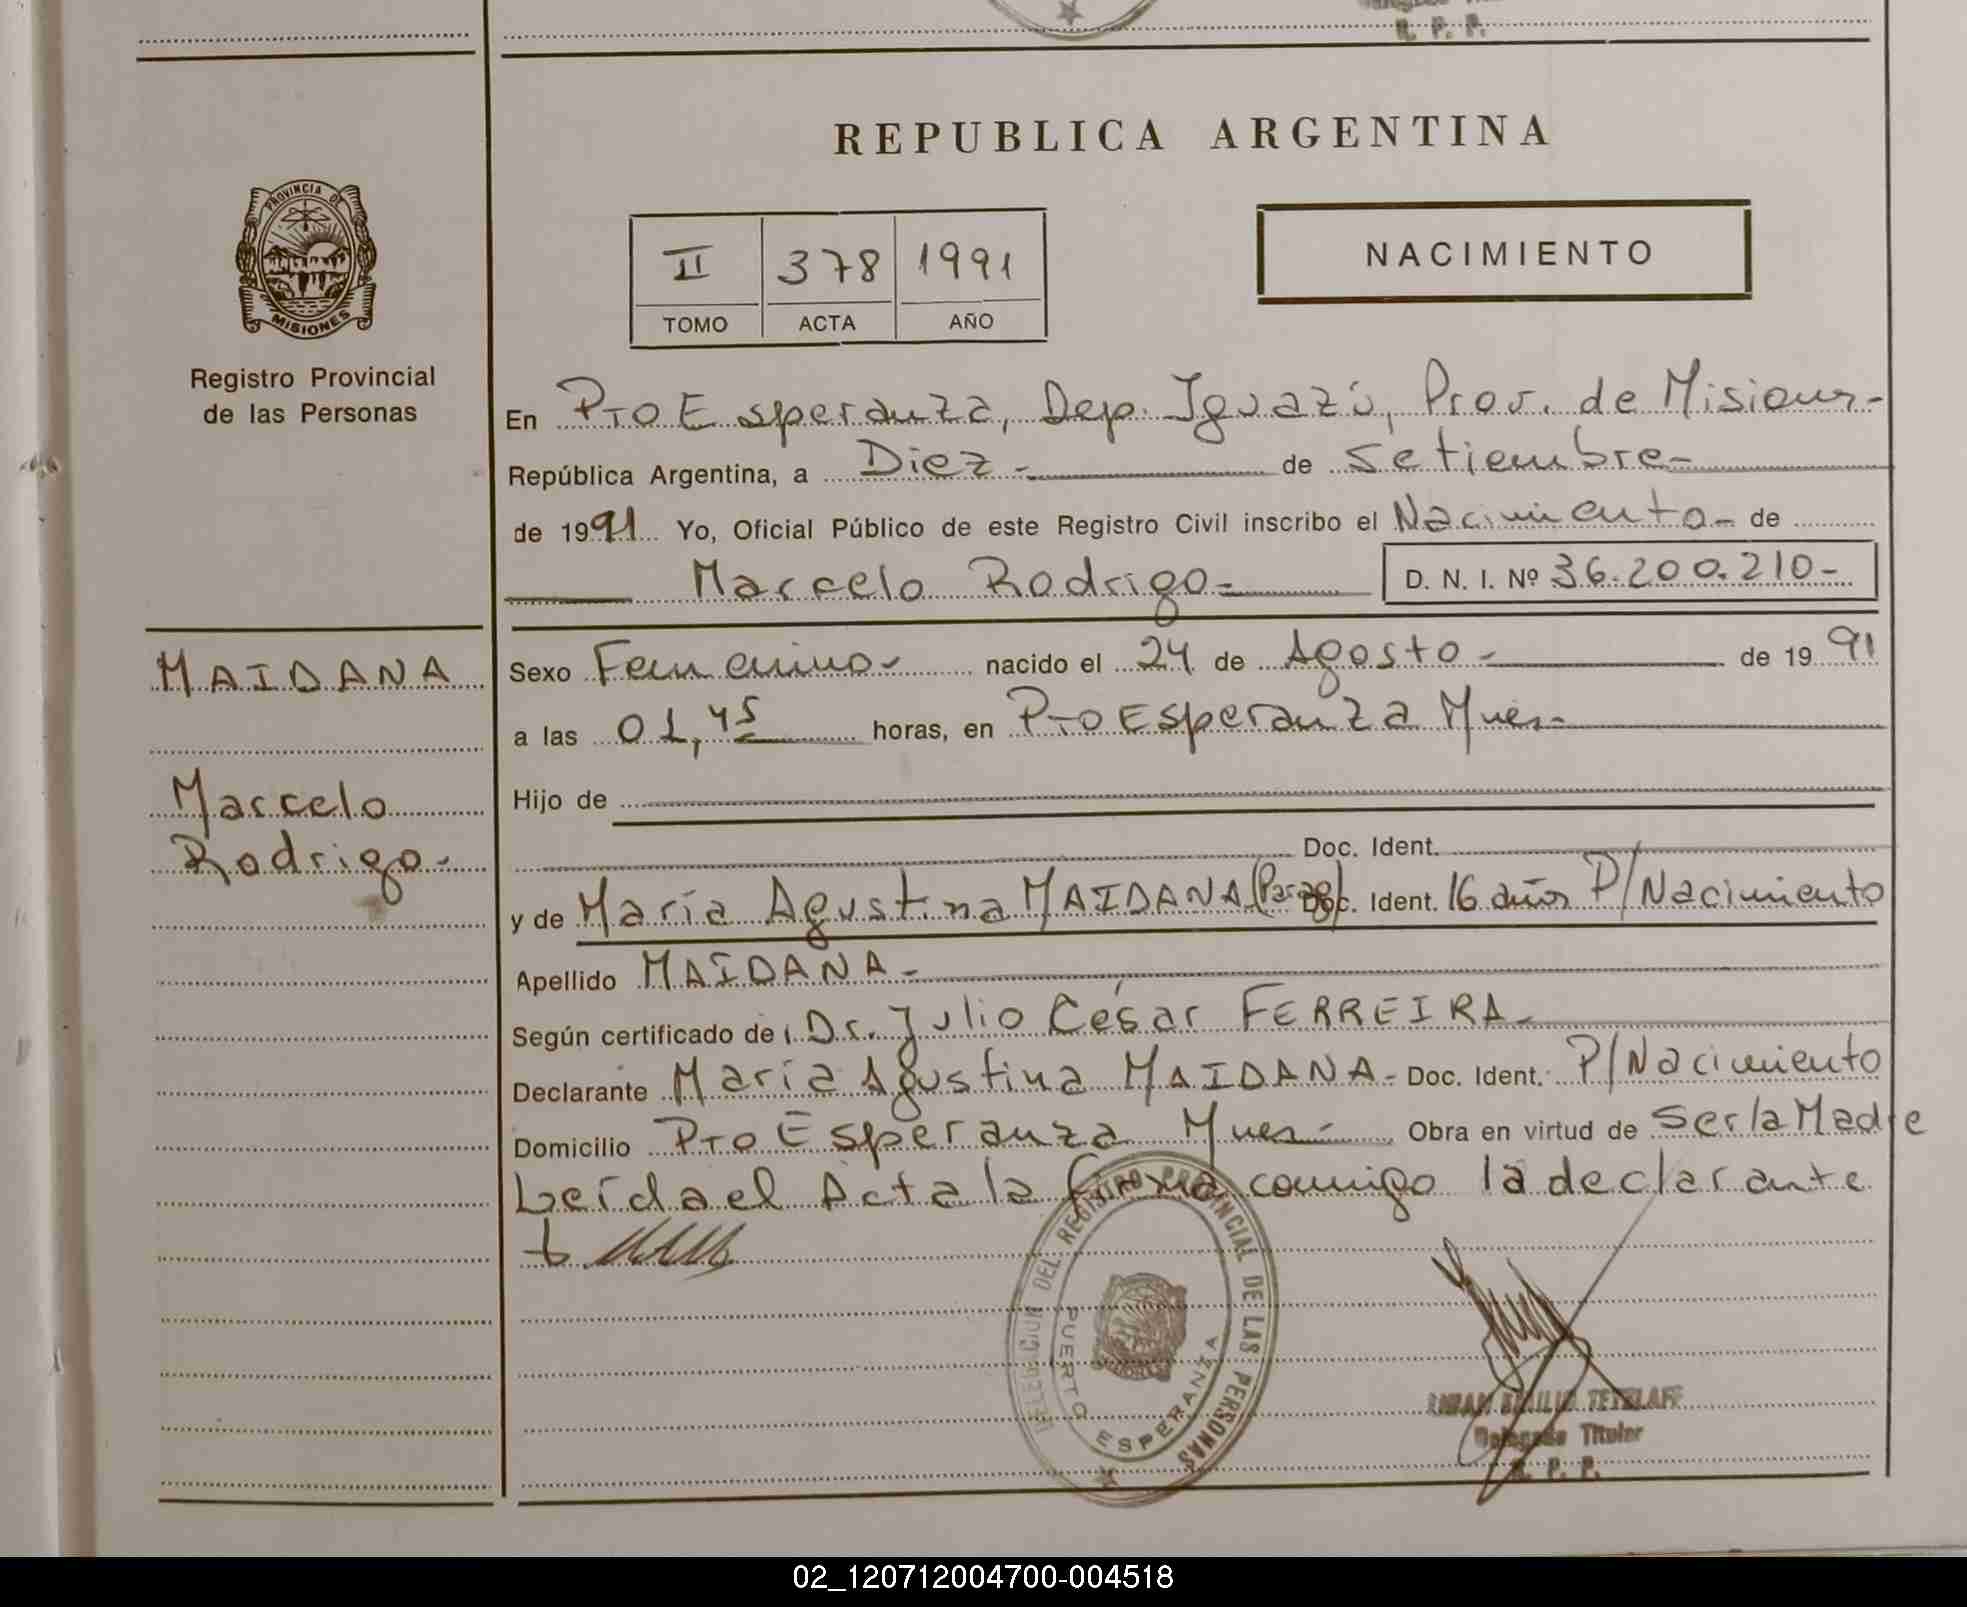 R. P. P.
REPUBLICA ARGENTINA
PROVINCIA DE
MISIONES
Registro Provincial
de las Personas
II 378 1991
TOMO ACTA AÑO
NACIMIENTO
En Pto Esperanza, Dep. Iguazú, Prov. de Misiones-
República Argentina, a Diez - de Setiembre-
de 1991 Yo, Oficial Público de este Registro Civil inscribo el Nacimiento- de
Marcelo Rodrigo- D. N. I. Nº 36.200.210-
MAIDANA
Marcelo
Rodrigo-
Sexo Femenino- nacido el 24 de Agosto - de 1991
a las 01,45 horas, en Pto Esperanza Mnes-
Hijo de
Doc. Ident.
y de María Agustina MAIDANA (Parag) Doc. Ident. 16 años P/Nacimiento
Apellido MAIDANA-
Según certificado de Dr. Julio César FERREIRA-
Declarante María Agustina MAIDANA- Doc. Ident. P/Nacimiento
Domicilio Pto Esperanza Mnes- Obra en virtud de Ser la Madre
Leída el Acta la firma conmigo la declarante
DELEGACION DEL REGISTRO PROVINCIAL DE LAS PERSONAS
PUERTO ESPERANZA
EMILIO TETZLAFF
Delegado Titular
R. P. P.
02_120712004700-004518